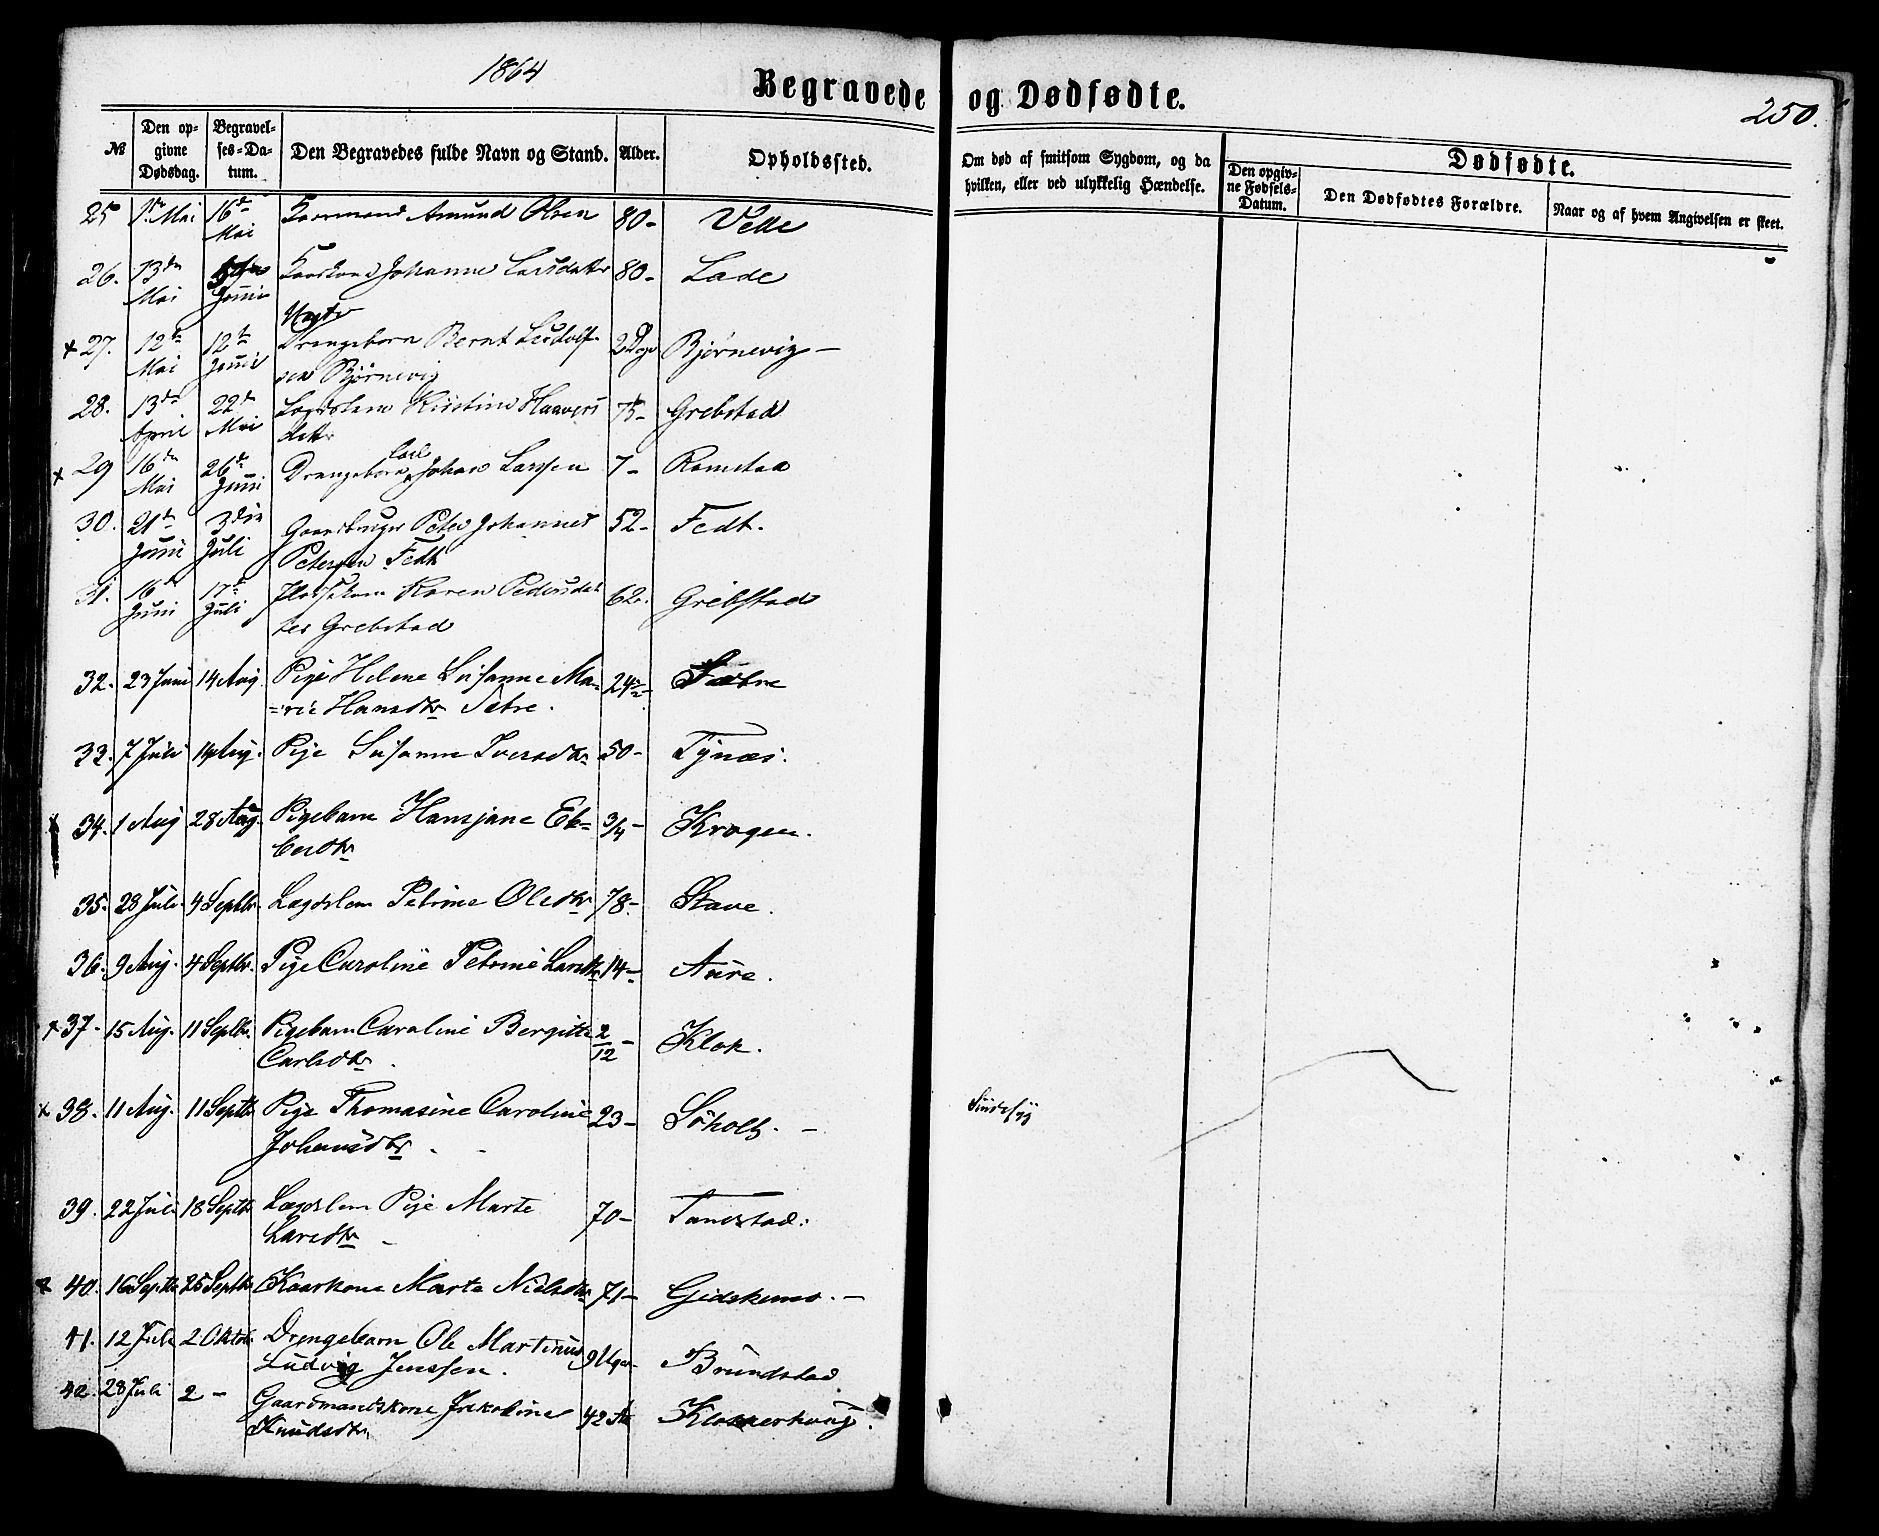 1864
Begravede og Dødfødte.
250.
№
Den op-
givne
Dødsdag.
Begravel-
ses-Da-
tum.
Den Begravedes fulde Navn og Stand.
Alder.
Opholdssted.
Om død af smitsom Sygdom, og da
hvilken, eller ved ulykkelig Hændelse.
Dødfødte.
Den opgiv-
ne Fødsels-
Datum.
Den Dødfødtes Forældre.
Naar og af hvem Angivelsen er skeet.
25 1ste Mai 16de Mai Kaarmand Amund Olsen 80- Velle
26. 13de Mai Juni Kaarkone Johanne Larsdatter 80- Lade
x 27. 12te Mai 12te Juni Drengebarn Bernt Ludolf-
sen Bjørnevig 2 Dage Bjørnevig -
28. 13de April 22de Mai Lægdslem Kirstine Haavers
datter 75- Grebstad
x 29 16de Mai 26de Juni Drengebarn Carl Johan Larsen 7- Ramstad
30. 21de Juni 3die Juli Gaardbruger Peter Johannes
Petersen Fedt 52- Fedt.
31. 16de Juni 17de Juli Karen Pedersdat
ter Grebstad 62. Grebstad
32. 23 Juni 14 Aug. Pige Helene Susanne Ma=
=rie Hansdtr Sætre. 24 Sætre
33. 7 Juli 14 Aug. Pige Susanne Iversdtr 50- Tynæs.
x 34. 1 Aug 28 Aug. Pigebarn Hansjane El=
bertdtr 3/4 - Krogen.
35. 28 Juli 4 Septbr. Lægdslem Petrine Olesdtr 78- Stave.
36. 9 Aug. 4 Septbr. Pige Caroline Petrine Larsdtr 14- Aure.
x 37- 15 Aug. 11 Septbr. Pigebarn Caroline Bergitte
Carlsdtr. 2/12 - Klok.
x 38. 11 Aug. 11 Septbr Pige Thomasine Caroline
Johansdtr. 23- Søholt. -
39. 22 Juli 18 Septbr Lægdslem Pige Marte
Larsdtr - 70- Tandstad.
x 40. 16 Septbr 25 Septbr Kaarkone Marte Nielsdtr 71- Gidskemo. -
41. 12 Juli 2 Oktob. Drengebarn Ole Martinus
Ludvig Jenssen. 9 Uger Brundstad
42. 28 Juli 2 - Gaardmandskone Jakobine
Knudsdtr. 42 Klokkerhaug.